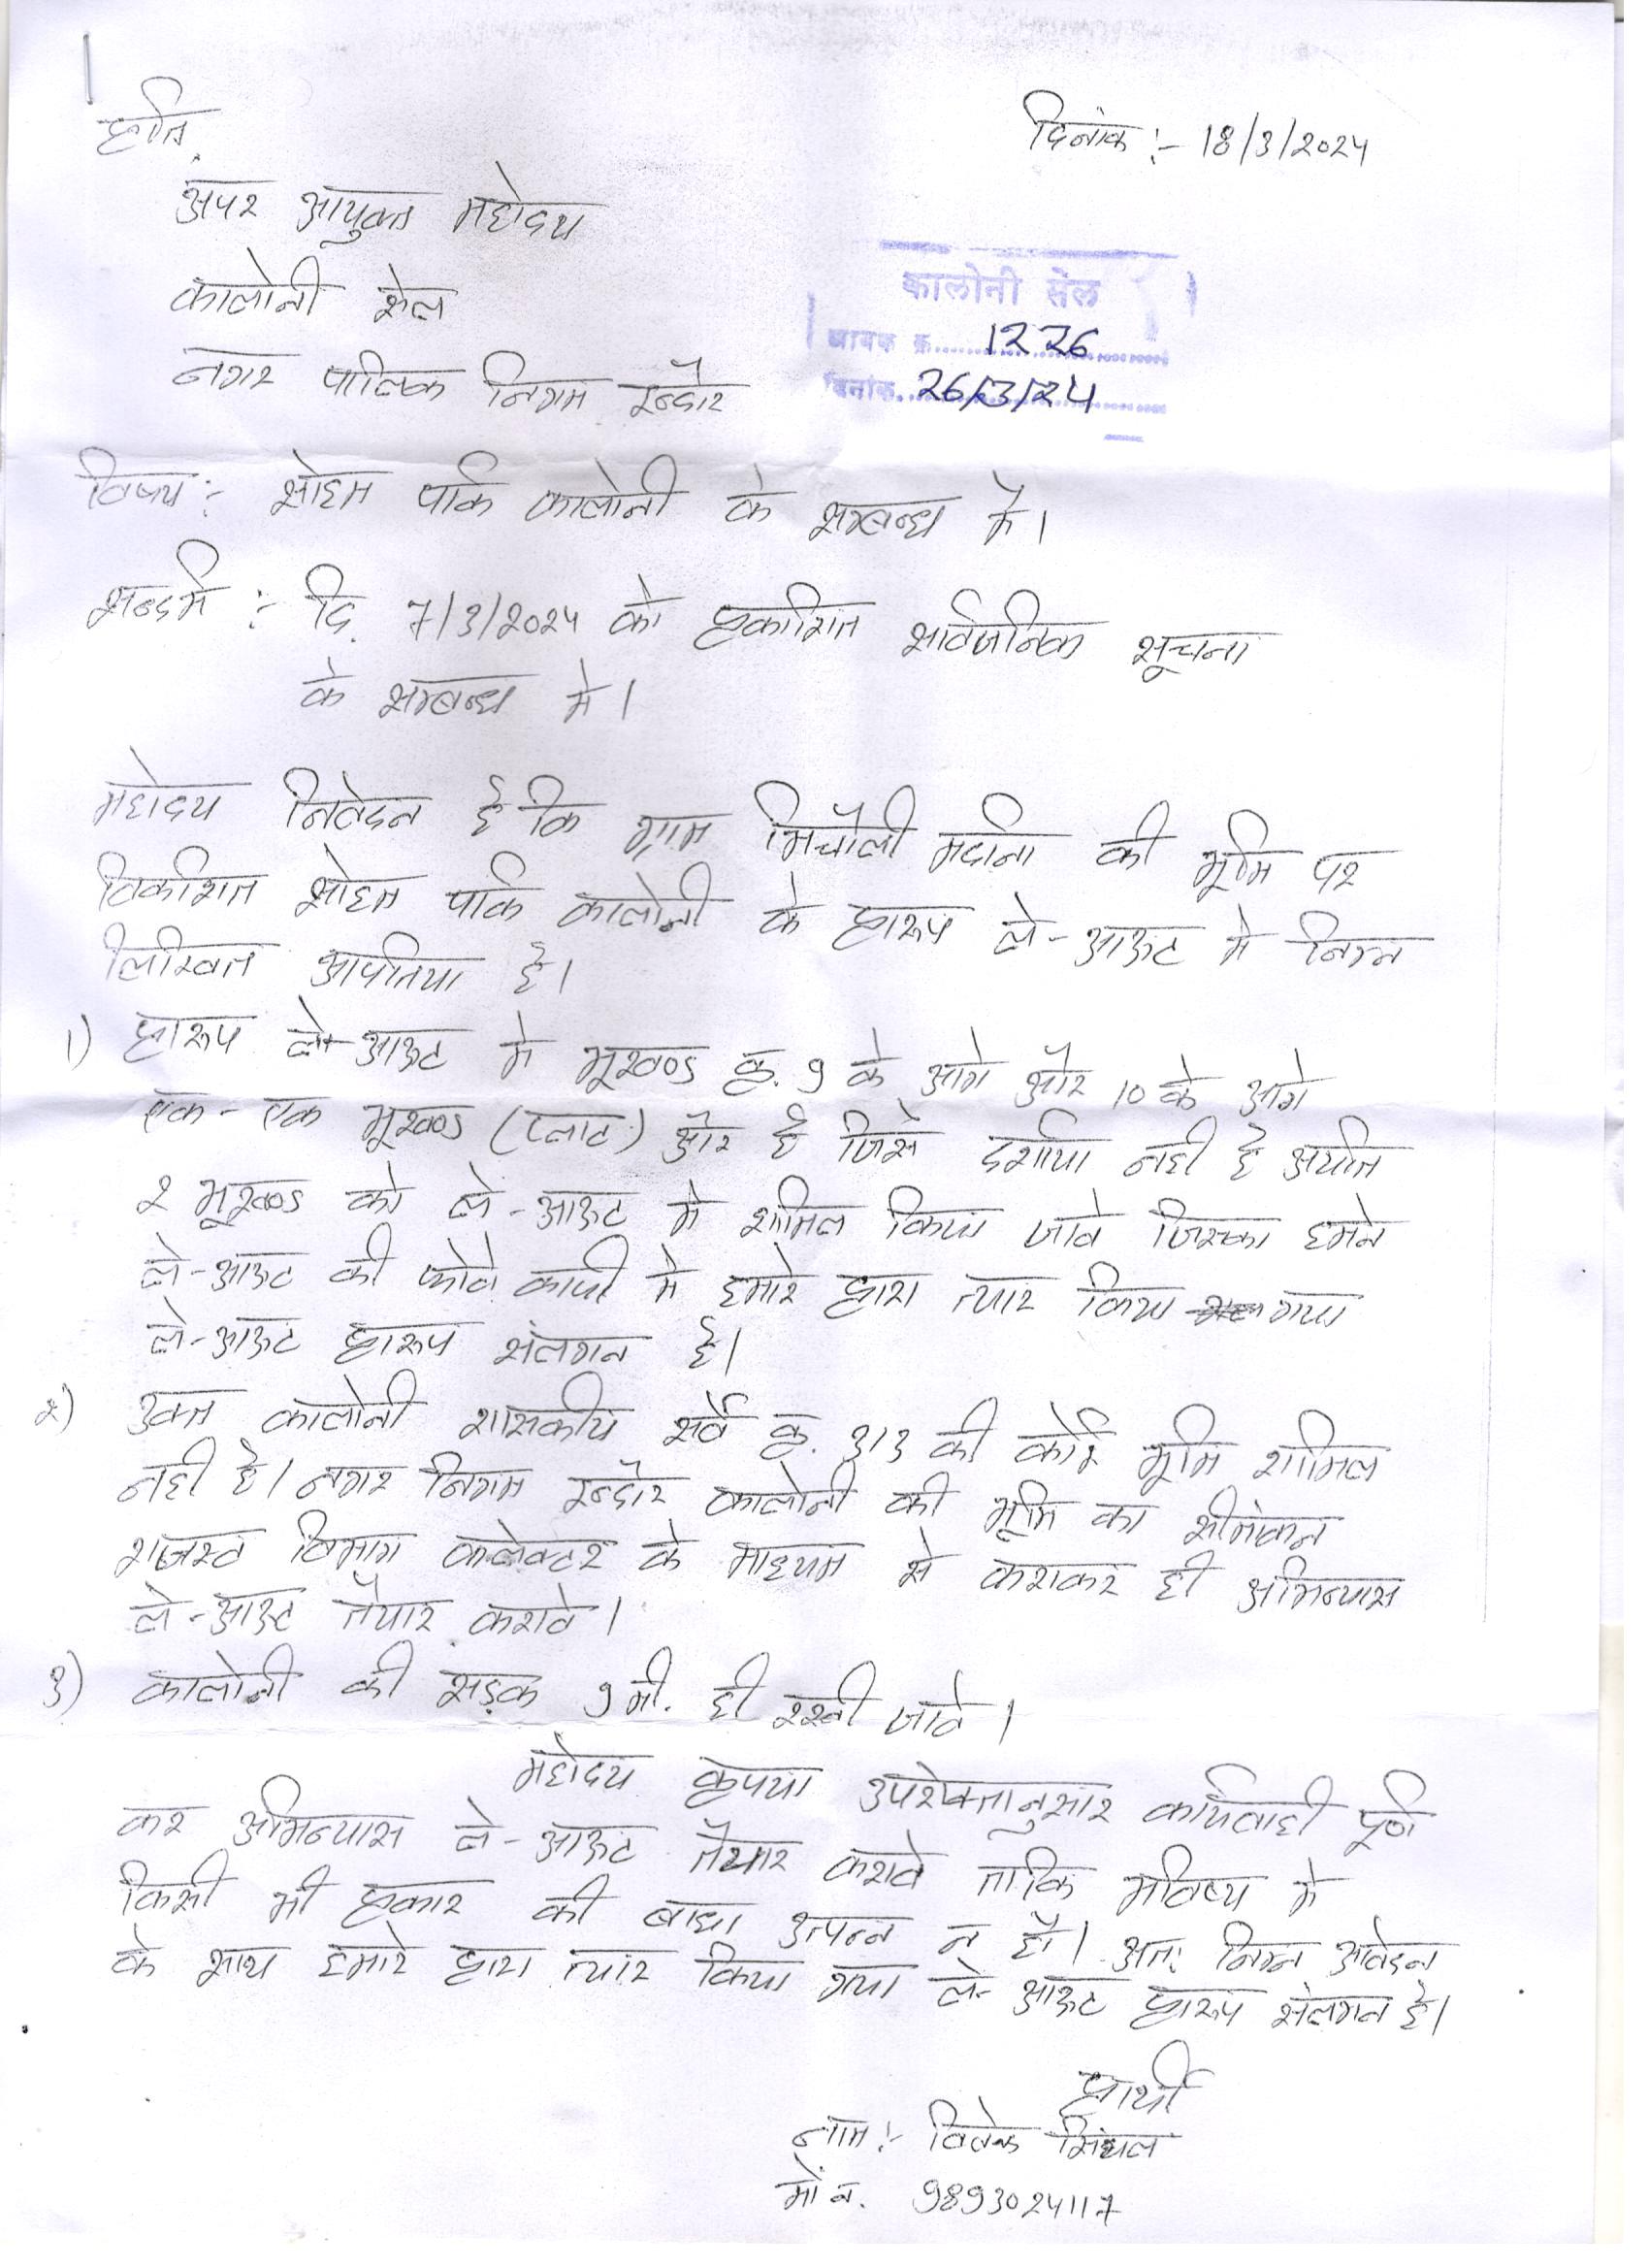 प्रति,
दिनांक :- 18/3/2024
अपर आयुक्त महोदय
कालोनी सेल
कालोनी शेल
जावक क्र. 1226
नगर पालिक निगम इन्दौर
दिनांक. 26/3/24
विषय :- सोहम पार्क कालोनी के सम्बन्ध में।
सन्दर्भ :- दि. 7/3/2024 को प्रकाशित सार्वजनिक सूचना
के सम्बन्ध मे।
महोदय निवेदन है कि ग्राम मिचौली मर्दाना की भूमि पर
विकशित सोहम पार्क कालोनी के प्रारूप ले-आऊट मे निम्न
लिखित आपत्तिया है।
1) प्रारूप ले-आऊट मे भूखण्ड क्र. 9 के आगे और 10 के आगे
एक-एक भूखण्ड (प्लाट) और है जिसे दर्शाया नही है अर्थात
2 भूखण्ड को ले-आऊट मे शामिल किया जावे जिसका हमने
ले-आऊट की फोटो कापी मे हमारे द्वारा त्यार किया गया
ले-आऊट प्रारूप संलगन है।
2) उक्त कालोनी शासकीय सर्वे क्र. 313 की कोई भूमि शामिल
नही है। नगर निगम इन्दौर कालोनी की भूमि का सीमांकन
राजस्व विभाग कलेक्टर के माध्यम से कराकर ही अभिन्यास
ले-आऊट तैयार करावे।
3) कालोनी की सड़क 9 मी. ही रखी जावे।
महोदय कृपया उपरोक्तानुसार कार्यवाही पूर्ण
कर अभिन्यास ले-आऊट तैयार करावे ताकि भविष्य मे
किसी भी प्रकार की बाधा उत्पन्न न हो। अतः निम्न आवेदन
के साथ हमारे द्वारा त्यार किया गया ले-आऊट प्रारूप संलगन है।
प्रार्थी
नाम :- विवेक सिंघल
मो न. 9893024117